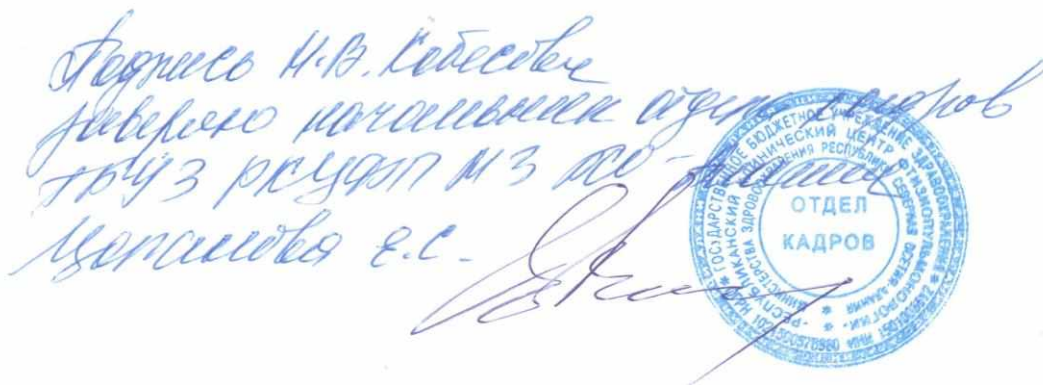 Подпись Н.В. Кобесовой
заверяю начальник отдела кадров
ГБУЗ РКЦФП МЗ РСО-Алания
Е.С.
ОТДЕЛ
КАДРОВ
* ГОСУДАРСТВЕННОЕ БЮДЖЕТНОЕ УЧРЕЖДЕНИЕ ЗДРАВООХРАНЕНИЯ *
РЕСПУБЛИКАНСКИЙ КЛИНИЧЕСКИЙ ЦЕНТР ФТИЗИОПУЛЬМОНОЛОГИИ
МИНИСТЕРСТВА ЗДРАВООХРАНЕНИЯ РЕСПУБЛИКИ СЕВЕРНАЯ ОСЕТИЯ-АЛАНИЯ